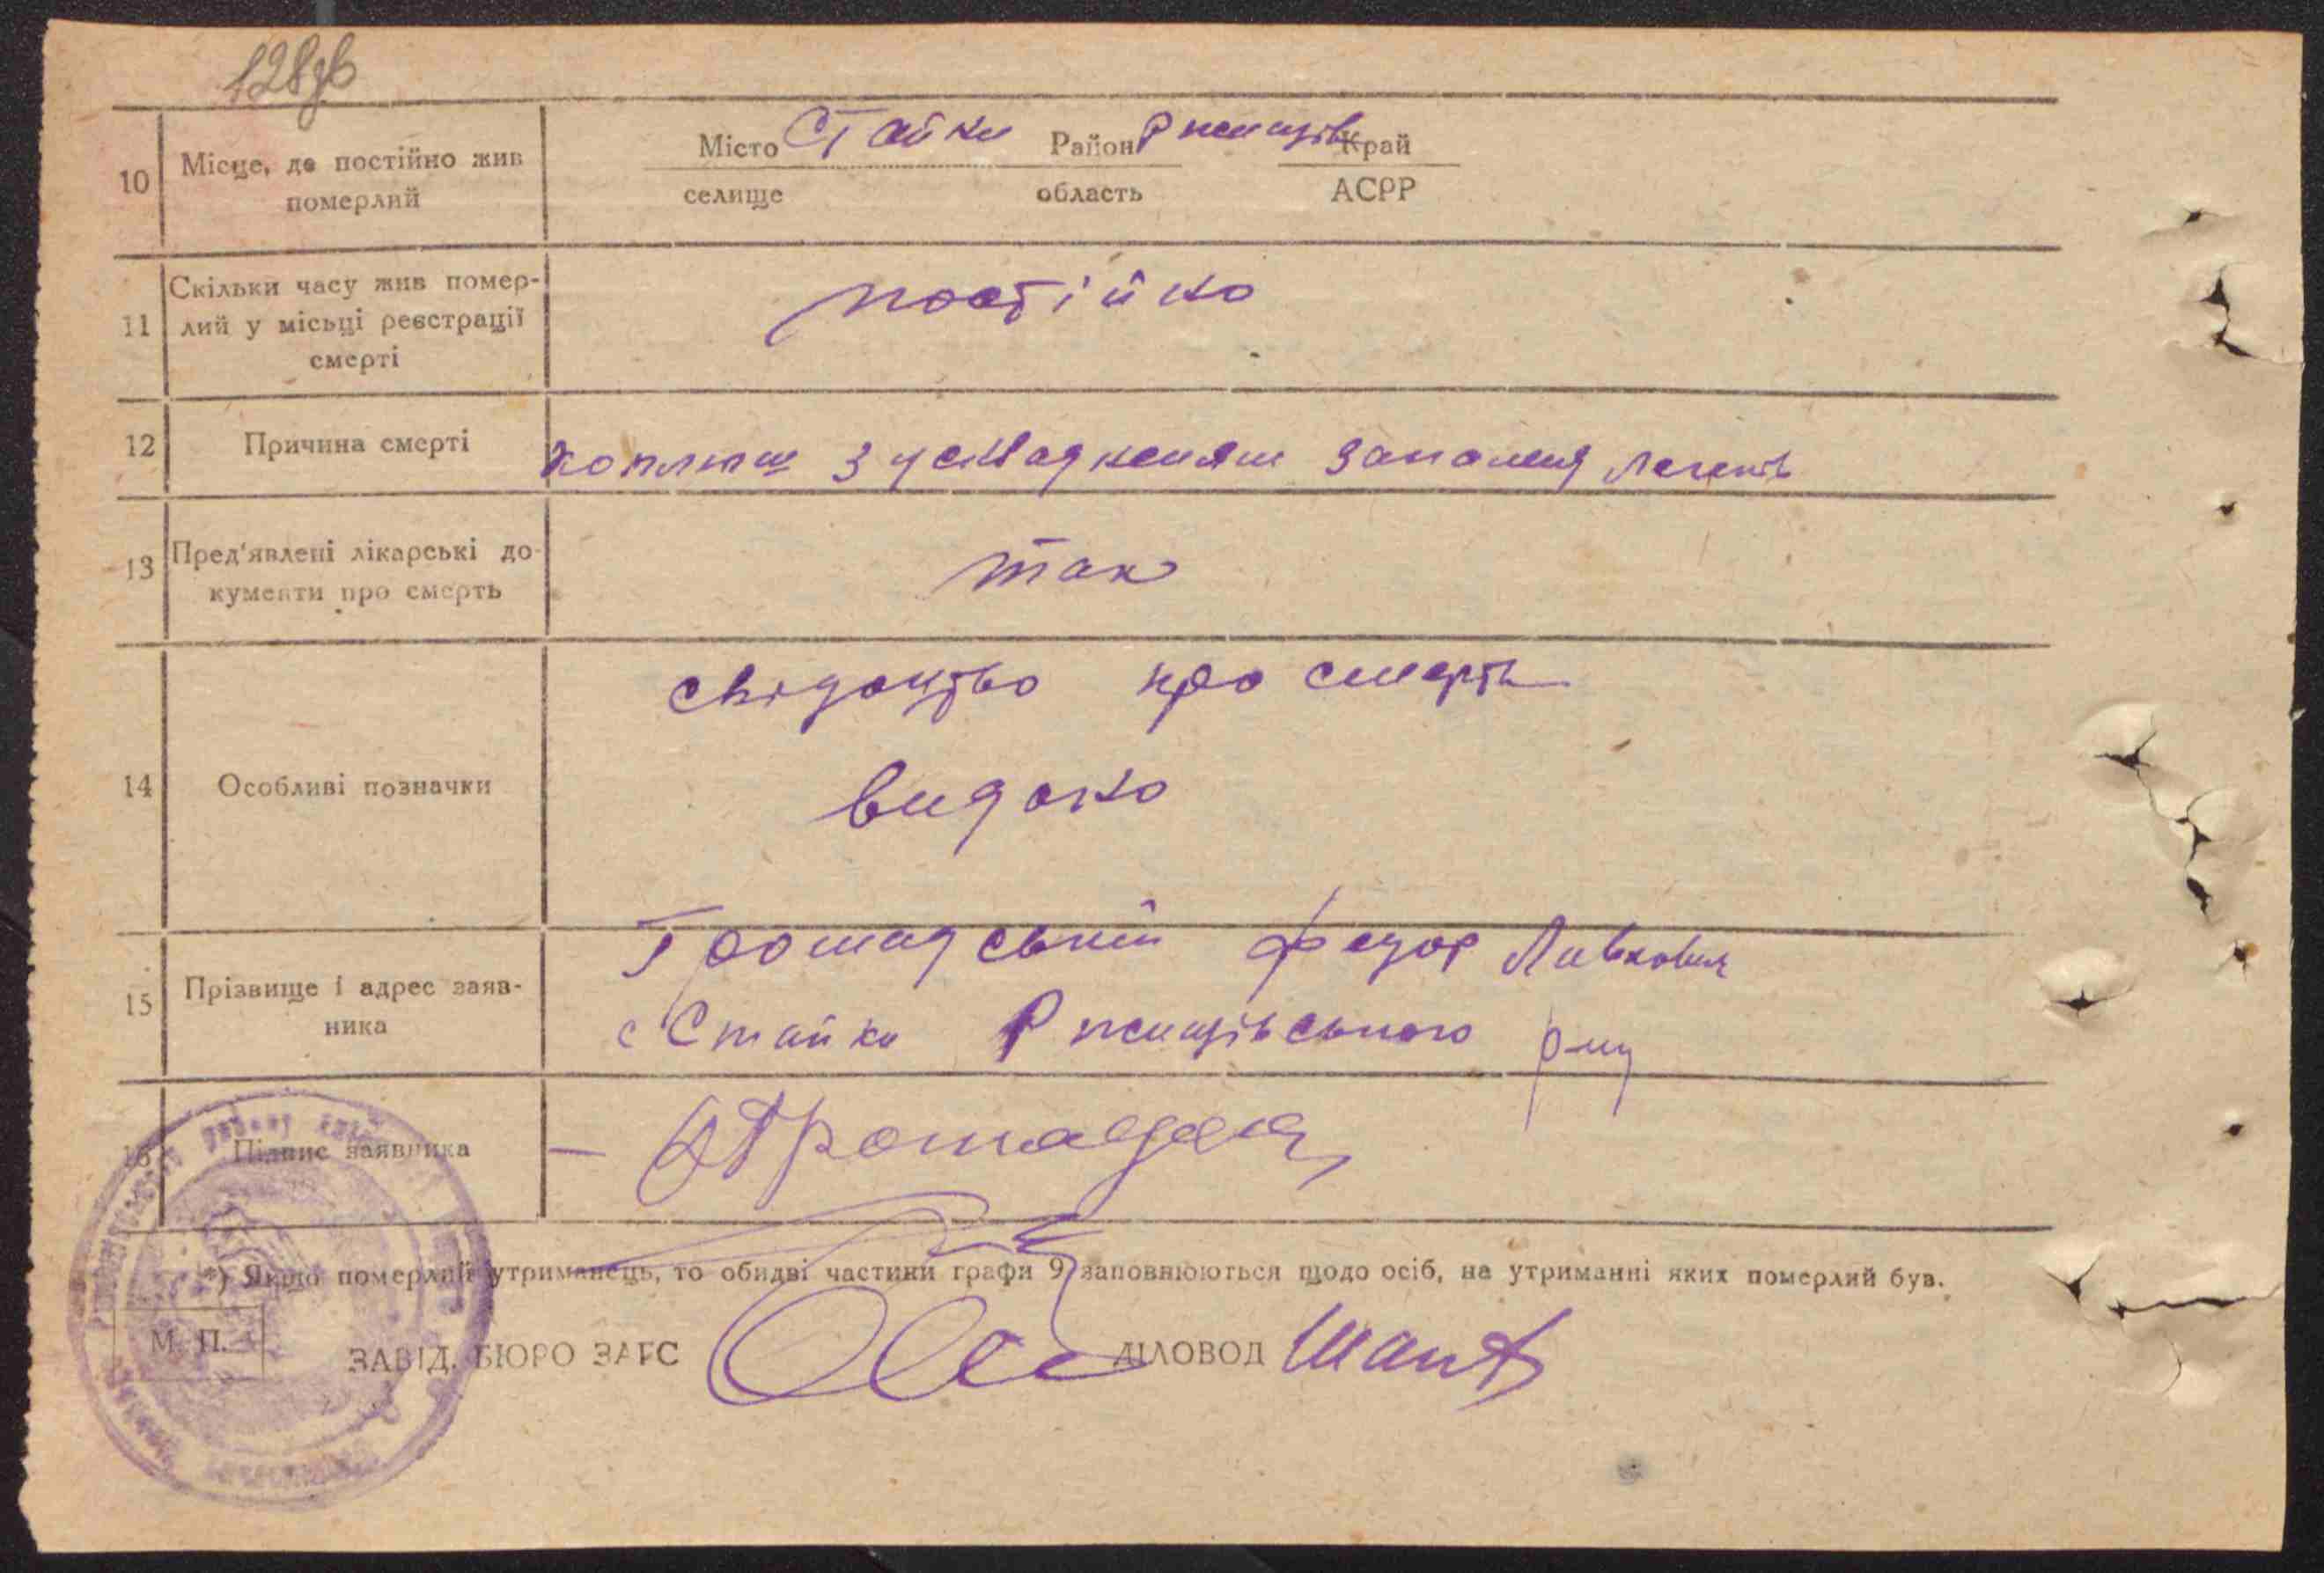 128зв
10 Місце, де постійно жив померлий
Місто Стайки Район Ржищів Край
селище область АСРР
11 Скільки часу жив помер-
лий у місьці реєстрації
смерті
постійно
12 Причина смерті коплюш з ускладненям запаленя легень
13 Пред'явлені лікарські до-
кументи про смерть
так
14 Особливі позначки
свідоцтво про смерть
видано
15 Прізвище і адрес заяв-
ника
Громадський Федор
с Стайки Ржищівського р-ну
16 Підпис заявника
*) Якщо померлий утриманець, то обидві частини графи 9 заповнюються щодо осіб, на утриманні яких померлий був.
М. П.
ЗАВІД. БЮРО ЗАГС ДІЛОВОД